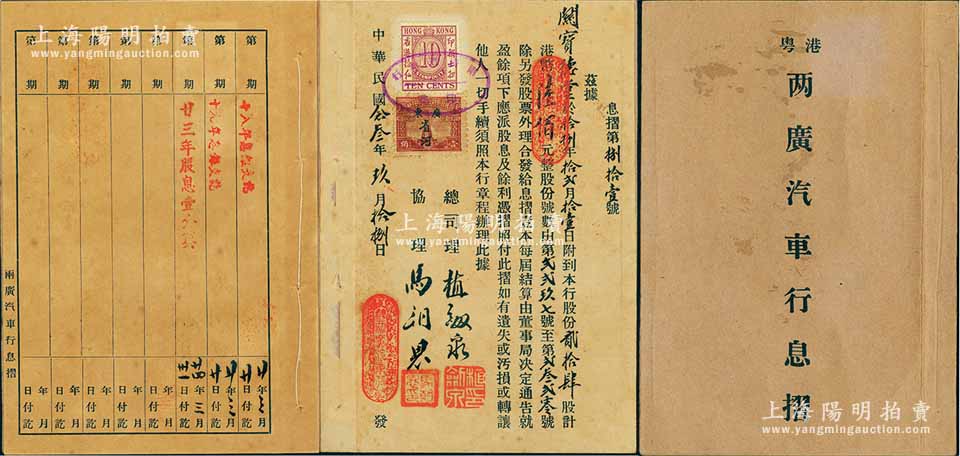 港粵
两廣汽車行息摺
息摺第捌拾壹號
茲據
關賓 於拾捌年拾弍月拾壹日附到本行股份貳拾肆股計
港幣 佰元整股份號數由第弍弍玖七號至第弍叁弍叁號
除另發股票外理合發給息摺 本每屆結算由董事局决定通告就
盈餘項下應派股息及餘利憑摺照付此摺如有遺失或汚損或轉讓
他人一切手續須照本行章程辦理此據
總司理
協理 馬
中華民國 叁年玖月拾捌日 發
HONG KONG
10
TEN CENTS
廣東
省河
第 期 年 月 日付訖
第 期 年 月 日付訖
第 期 廿三年股息壹 年三月 日付訖
第 期 年 月 日付訖
第 期 年 月 日付訖
第 期 年 月 日付訖
第 期 年 月 日付訖
第 期 年 月 日付訖
兩廣汽車行息摺
上海陽明拍賣
www.yangmingauction.com
上海陽明拍賣
www.yangmingauction.com
上海陽明拍賣
www.yangmingauction.com